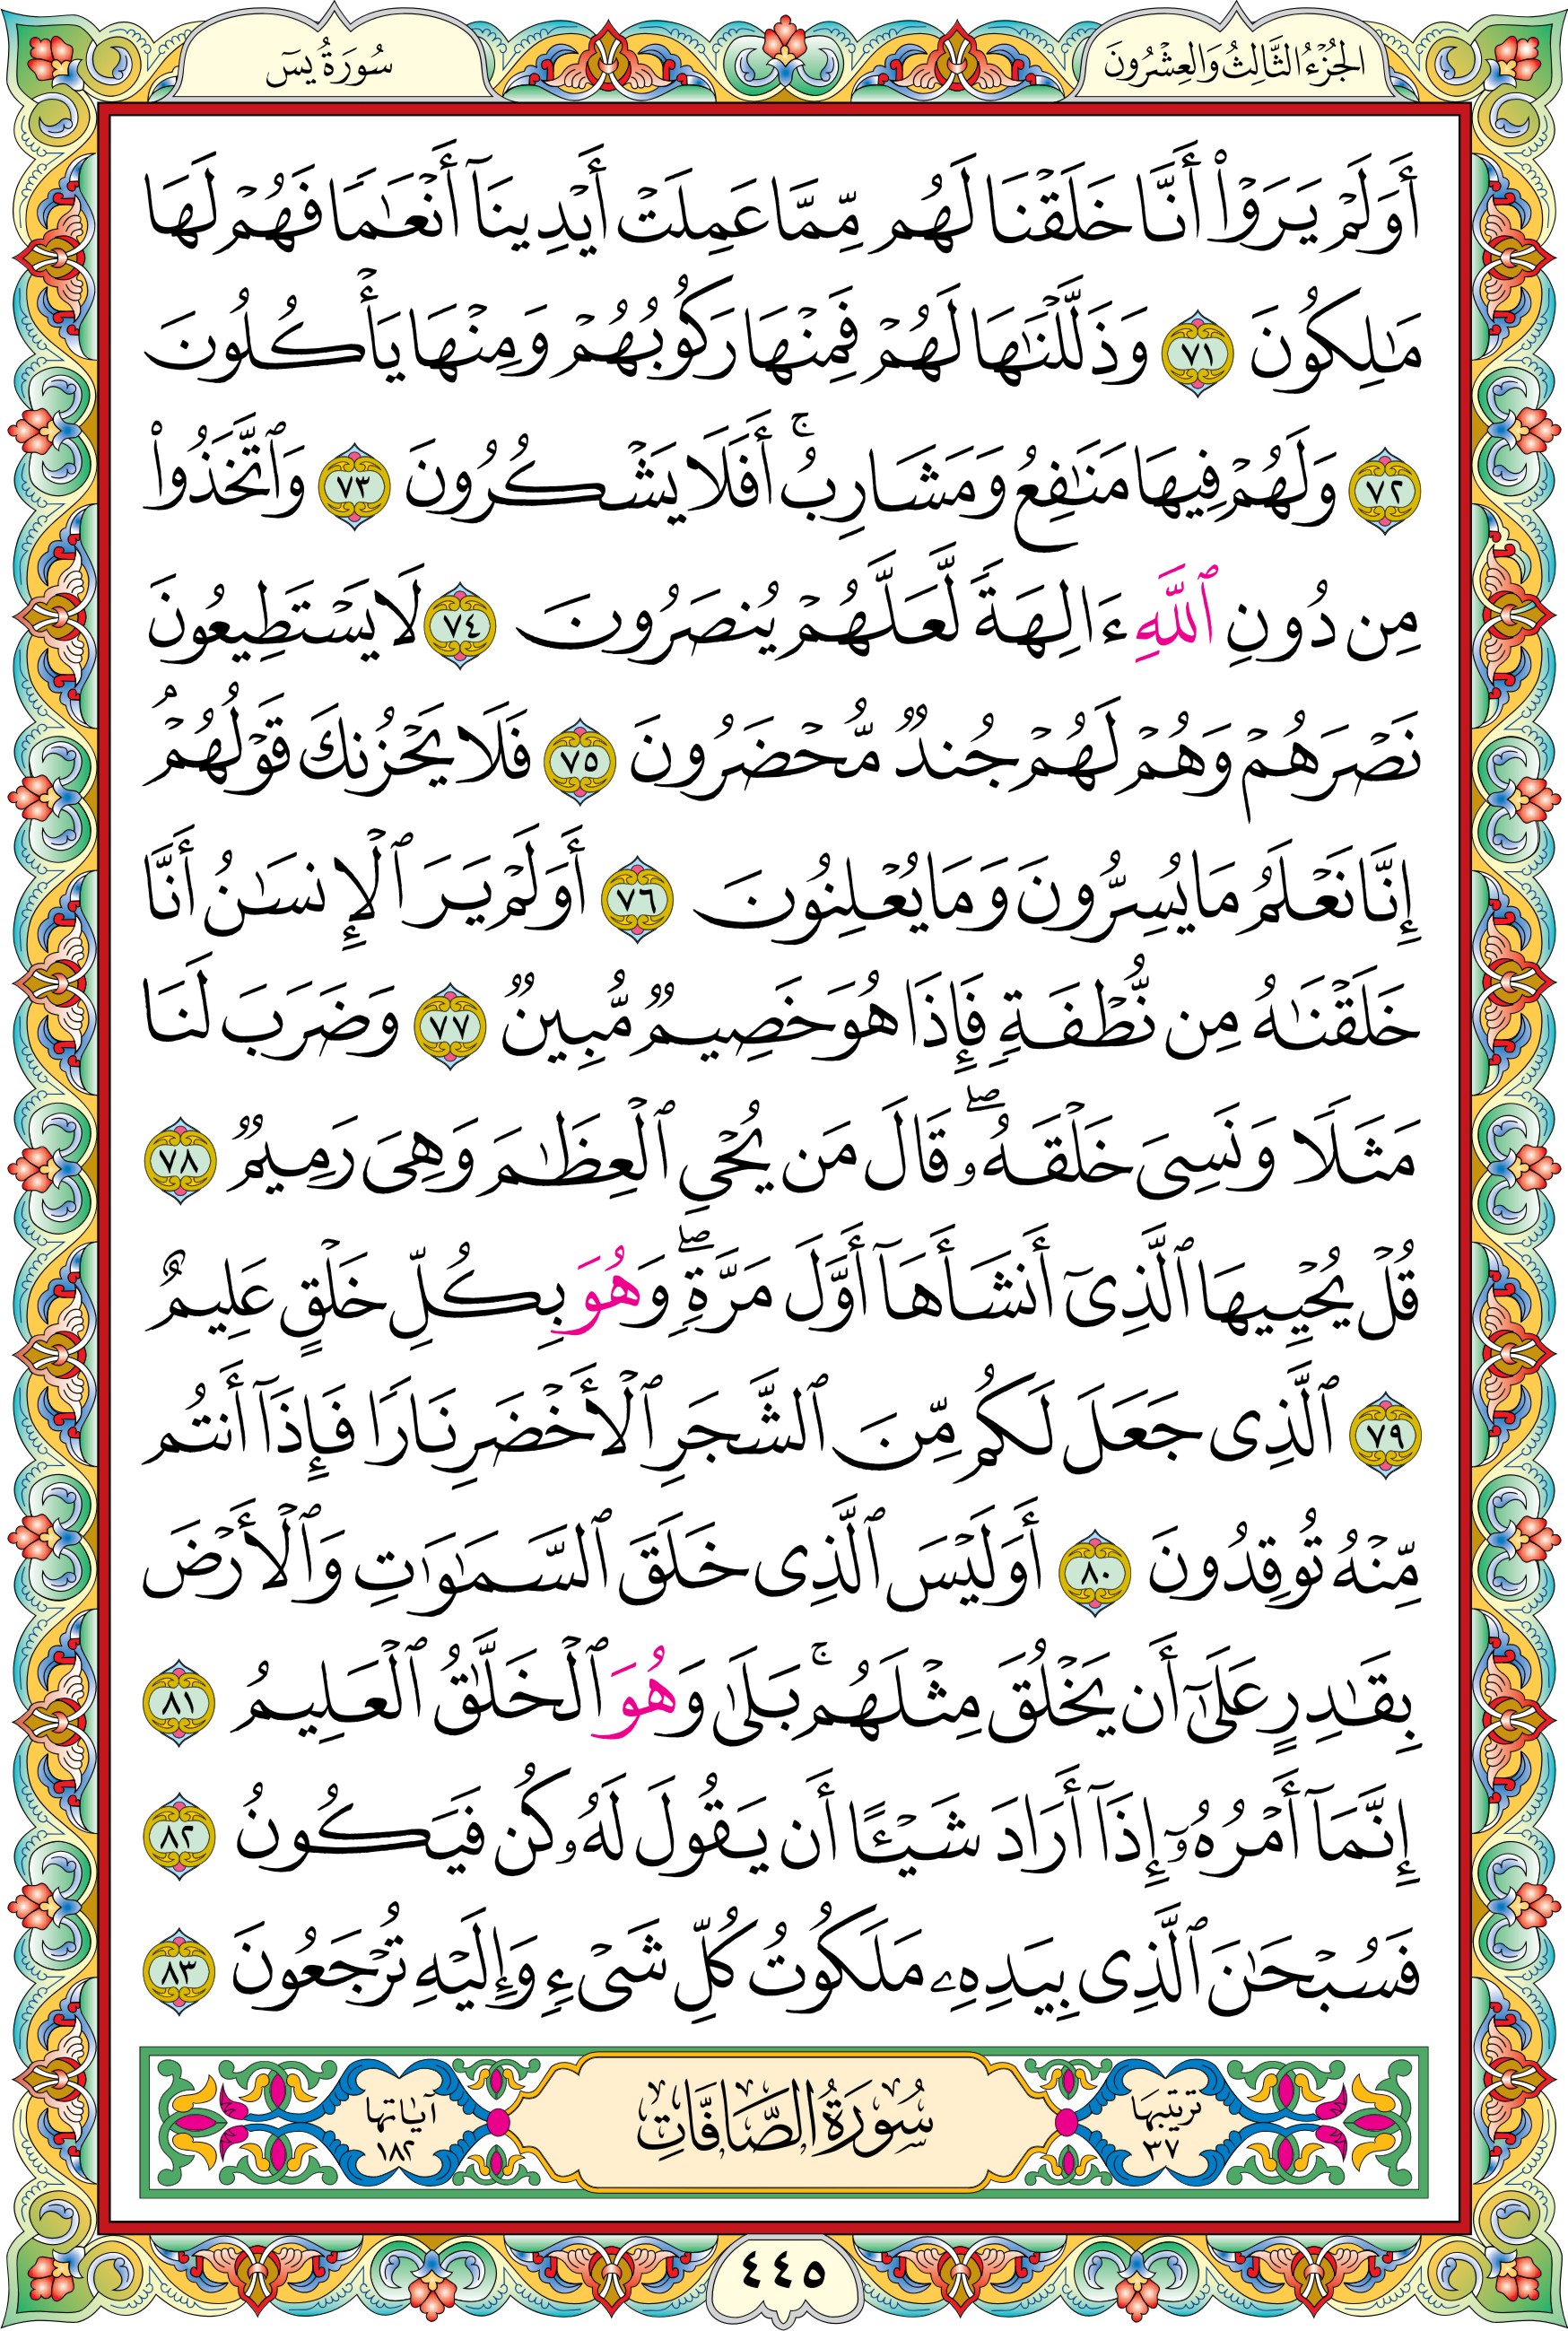 الجُزْءُ الثَّالِثُ وَالعِشْرُونَ
سُورَةُ يسٓ
أَوَلَمْ يَرَوْا۟ أَنَّا خَلَقْنَا لَهُم مِّمَّا عَمِلَتْ أَيْدِينَآ أَنْعَـٰمًا فَهُمْ لَهَا
مَـٰلِكُونَ ٧١ وَذَلَّلْنَـٰهَا لَهُمْ فَمِنْهَا رَكُوبُهُمْ وَمِنْهَا يَأْكُلُونَ
٧٢ وَلَهُمْ فِيهَا مَنَـٰفِعُ وَمَشَارِبُ ۚ أَفَلَا يَشْكُرُونَ ٧٣ وَٱتَّخَذُوا۟
مِن دُونِ ٱللَّهِ ءَالِهَةً لَّعَلَّهُمْ يُنصَرُونَ ٧٤ لَا يَسْتَطِيعُونَ
نَصْرَهُمْ وَهُمْ لَهُمْ جُندٌ مُّحْضَرُونَ ٧٥ فَلَا يَحْزُنكَ قَوْلُهُمْ ۘ
إِنَّا نَعْلَمُ مَا يُسِرُّونَ وَمَا يُعْلِنُونَ ٧٦ أَوَلَمْ يَرَ ٱلْإِنسَـٰنُ أَنَّا
خَلَقْنَـٰهُ مِن نُّطْفَةٍ فَإِذَا هُوَ خَصِيمٌ مُّبِينٌ ٧٧ وَضَرَبَ لَنَا
مَثَلًا وَنَسِىَ خَلْقَهُۥ ۖ قَالَ مَن يُحْىِ ٱلْعِظَـٰمَ وَهِىَ رَمِيمٌ ٧٨
قُلْ يُحْيِيهَا ٱلَّذِىٓ أَنشَأَهَآ أَوَّلَ مَرَّةٍ ۖ وَهُوَ بِكُلِّ خَلْقٍ عَلِيمٌ
٧٩ ٱلَّذِى جَعَلَ لَكُم مِّنَ ٱلشَّجَرِ ٱلْأَخْضَرِ نَارًا فَإِذَآ أَنتُم
مِّنْهُ تُوقِدُونَ ٨٠ أَوَلَيْسَ ٱلَّذِى خَلَقَ ٱلسَّمَـٰوَٰتِ وَٱلْأَرْضَ
بِقَـٰدِرٍ عَلَىٰٓ أَن يَخْلُقَ مِثْلَهُم ۚ بَلَىٰ وَهُوَ ٱلْخَلَّـٰقُ ٱلْعَلِيمُ ٨١
إِنَّمَآ أَمْرُهُۥٓ إِذَآ أَرَادَ شَيْـًٔا أَن يَقُولَ لَهُۥ كُن فَيَكُونُ ٨٢
فَسُبْحَـٰنَ ٱلَّذِى بِيَدِهِۦ مَلَكُوتُ كُلِّ شَىْءٍ وَإِلَيْهِ تُرْجَعُونَ ٨٣
ترتيبها ٣٧ سُورَةُ الصَّافَّاتِ آياتها ١٨٢
٤٤٥